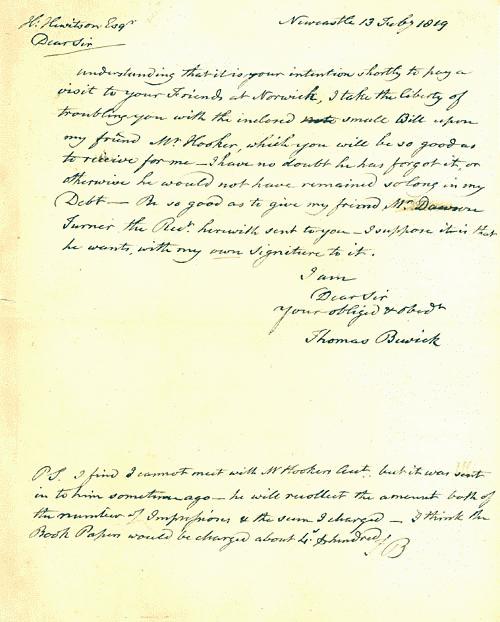 H: Hewitson Esqr
Newcastle 13 Feby 1819
Dear Sir
Understanding that it is your intention shortly to pay a
visit to your Friends at Norwick, I take the liberty of
troubling you with the inclosed note small Bill upon
my friend Mr Hooker, which you will be so good as
to receive for me — I have no doubt he has forgot it, or
otherwise he would not have remained so long in my
Debt — Be so good as to give my friend Mr Dawson
Turner the Rect herewith sent to you — I suppose it is that
he wants, with my own signiture to it.
I am
Dear Sir
your obliged & obedt
Thomas Bewick
PS. I find I cannot meet with Mr Hookers Act. but it was sent
in to him sometime ago — he will recollect the amount both of
the number of Impressions & the sum I charged — I think the
Book Papers would be charged about 4s. hundred
TB